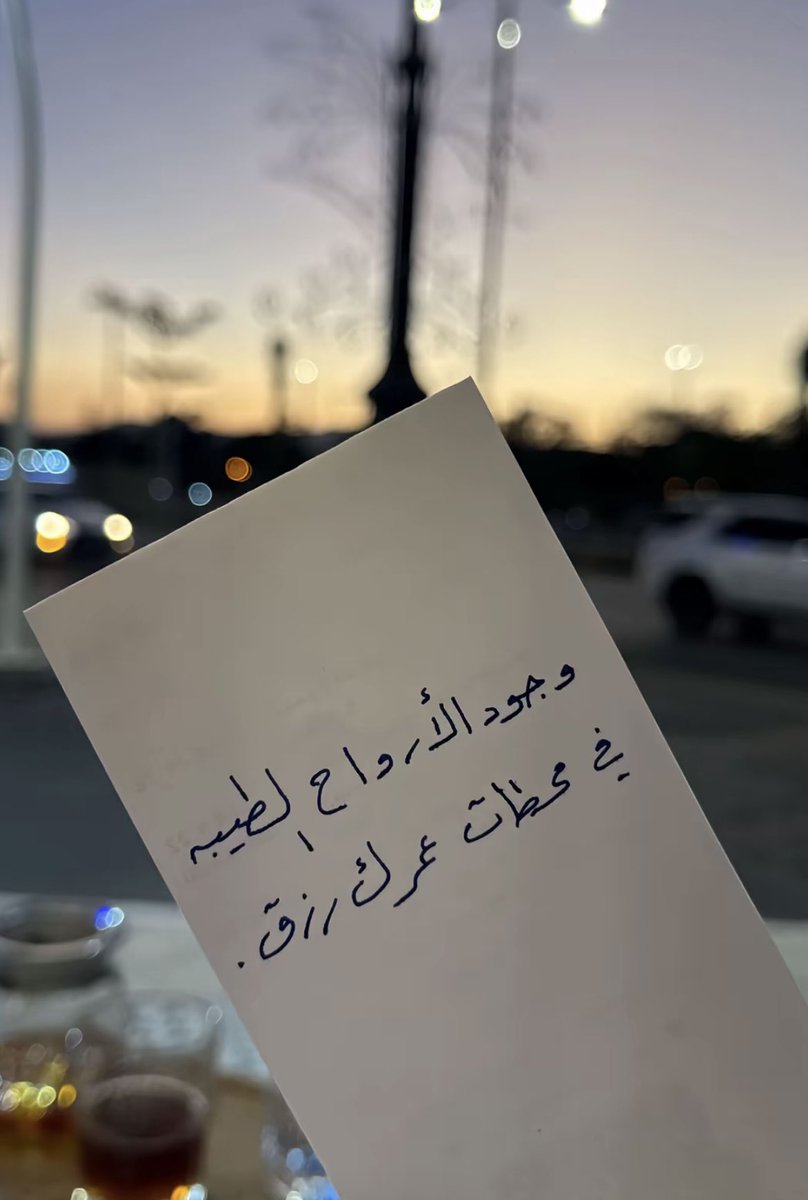 وجود الأرواح الطيبه
في محطات عمرك رزق.